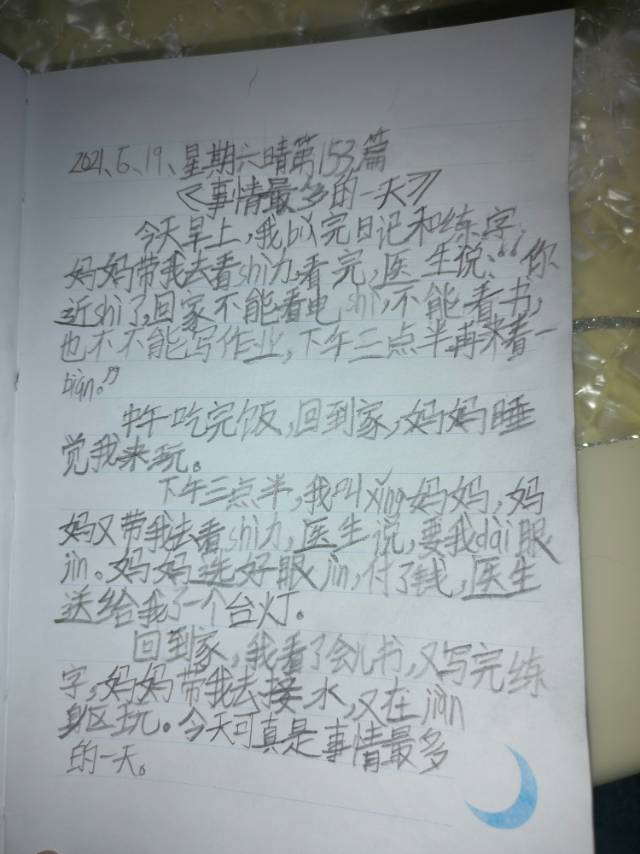 2021、6、19、星期六晴第153篇
《事情最多的一天》
今天早上,我以完日记和练字,
妈妈带我去看shi力,看完,医生说:“你
近shi了,回家不能看电shi,不能看书,
也不不能写作业,下午三点半再来看一
biàn。”
中午吃完饭,回到家,妈妈睡
觉我来玩。
下午三点半,我叫xǐng妈妈,妈
妈又带我去看shi力,医生说,要我dài眼
jìn。妈妈选好眼jìn,付了钱,医生
送给我了一个台灯。
回到家,我看了会儿书,又写完练
字,妈妈带我去接水,又在
区玩。今天可真是事情最多
的一天。